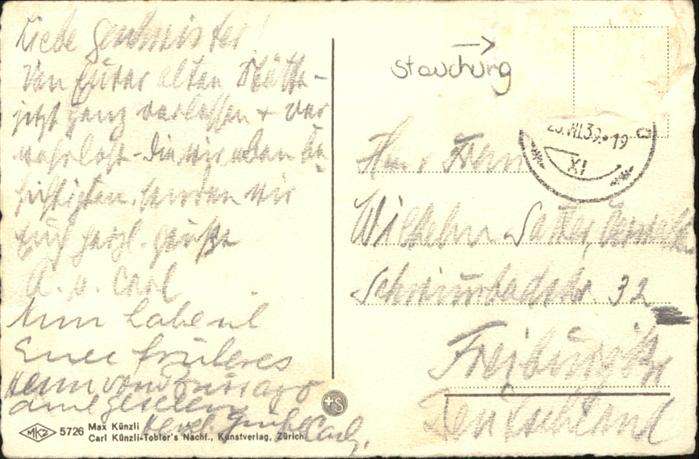 Liebe Geschwister!
Von guter alten Stätte -
jetzt ganz verlassen + ver
wahrlost - die wir eben be
sichtigten, senden wir
Euch herzl. Grüße
A. u. Carl
Nun habe ich
Euer früheres
Heim von
Carl.
Stauchung
XI
Herr Frau
Wilhelm
Schwimmbadstr. 32
Freiburg i. Br.
Deutschland
MKZ 5726 Max Künzli
Carl Künzli-Tobler's Nachf., Kunstverlag, Zürich